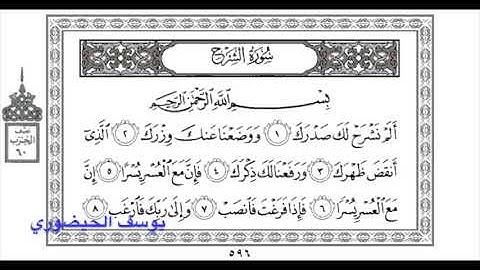 سُورَةُ الشَّرْحِ
بِسْمِ اللَّهِ الرَّحْمَٰنِ الرَّحِيمِ
أَلَمْ نَشْرَحْ لَكَ صَدْرَكَ ١ وَوَضَعْنَا عَنكَ وِزْرَكَ ٢ الَّذِي
أَنقَضَ ظَهْرَكَ ٣ وَرَفَعْنَا لَكَ ذِكْرَكَ ٤ فَإِنَّ مَعَ الْعُسْرِ يُسْرًا ٥ إِنَّ
مَعَ الْعُسْرِ يُسْرًا ٦ فَإِذَا فَرَغْتَ فَانصَبْ ٧ وَإِلَىٰ رَبِّكَ فَارْغَب ٨
يوسف الحيضوري
نصف
الحزب
٦٠
٥٩٦